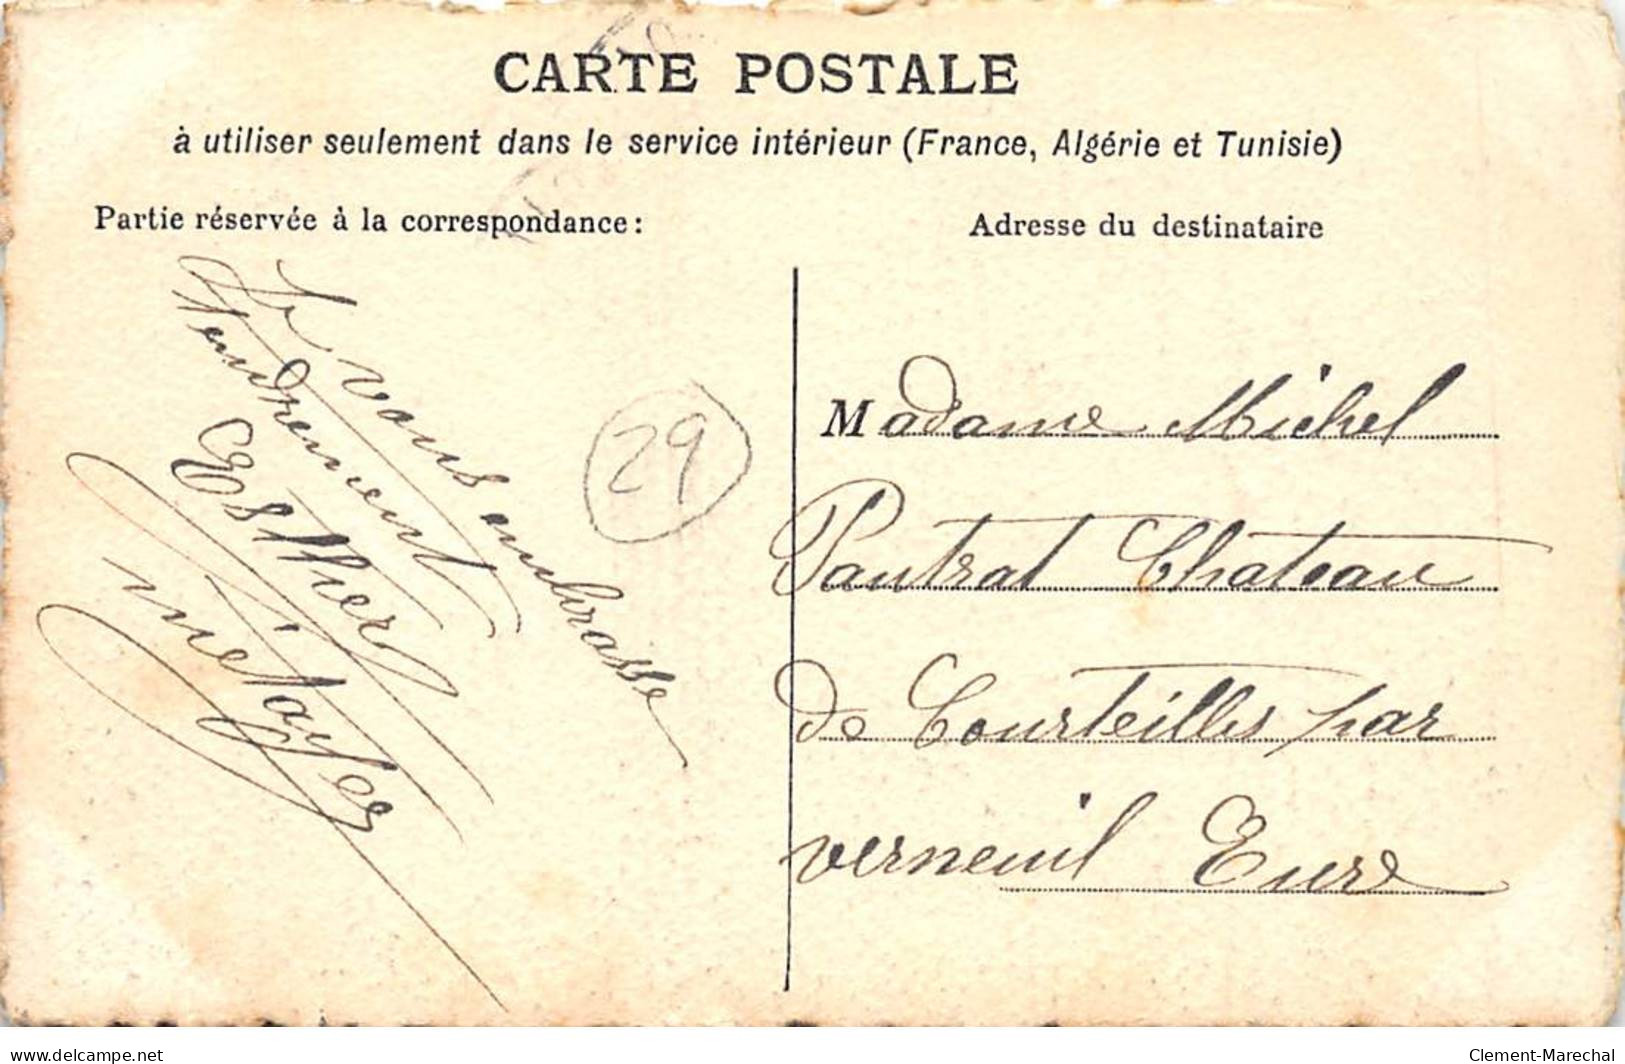 CARTE POSTALE
à utiliser seulement dans le service intérieur (France, Algérie et Tunisie)
Partie réservée à la correspondance:
Je vous embrasse
tendrement
Esther
métayer
29
Adresse du destinataire
Madame Michel
Pautrat Chateau
de Courteilles par
verneuil Eure
www.delcampe.net
Clement-Marechal